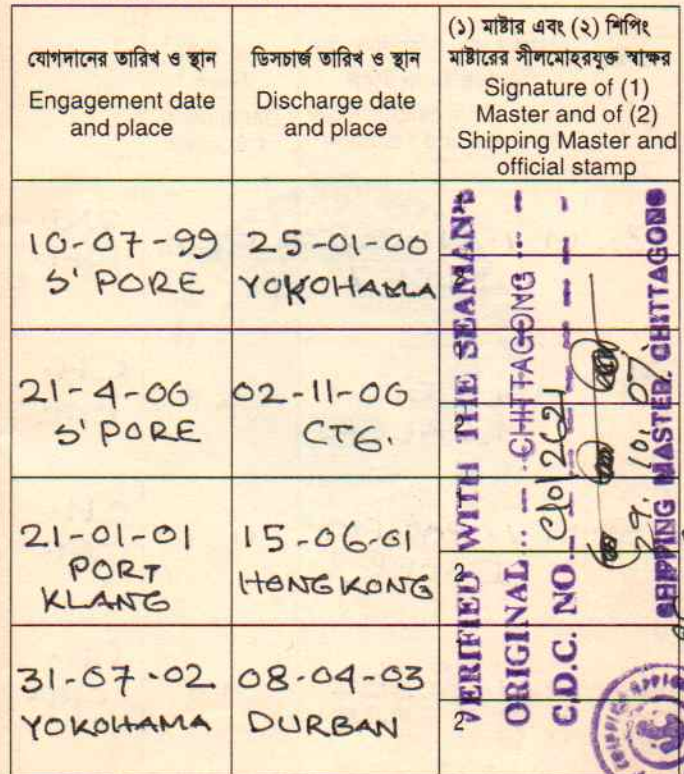 যোগদানের তারিখ ও স্থান
Engagement date
and place
ডিসচার্জ তারিখ ও স্থান
Discharge date
and place
(১) মাষ্টার এবং (২) শিপিং
মাষ্টারের সীলমোহরযুক্ত স্বাক্ষর
Signature of (1)
Master and of (2)
Shipping Master and
official stamp
10-07-99
S' PORE
25-01-00
YOKOHAMA
21-4-00
S' PORE
02-11-00
CTG.
2
21-01-01
PORT
KLANG
15-06-01
HONG KONG
2
31-07-02
YOKOHAMA
08-04-03
DURBAN
2
VERIFIED WITH THE SEAMAN'S
ORIGINAL ... CHITTAGONG ...
C.D.C. NO. C/o/2621
29.10.07
SHIPPING MASTER. CHITTAGONG